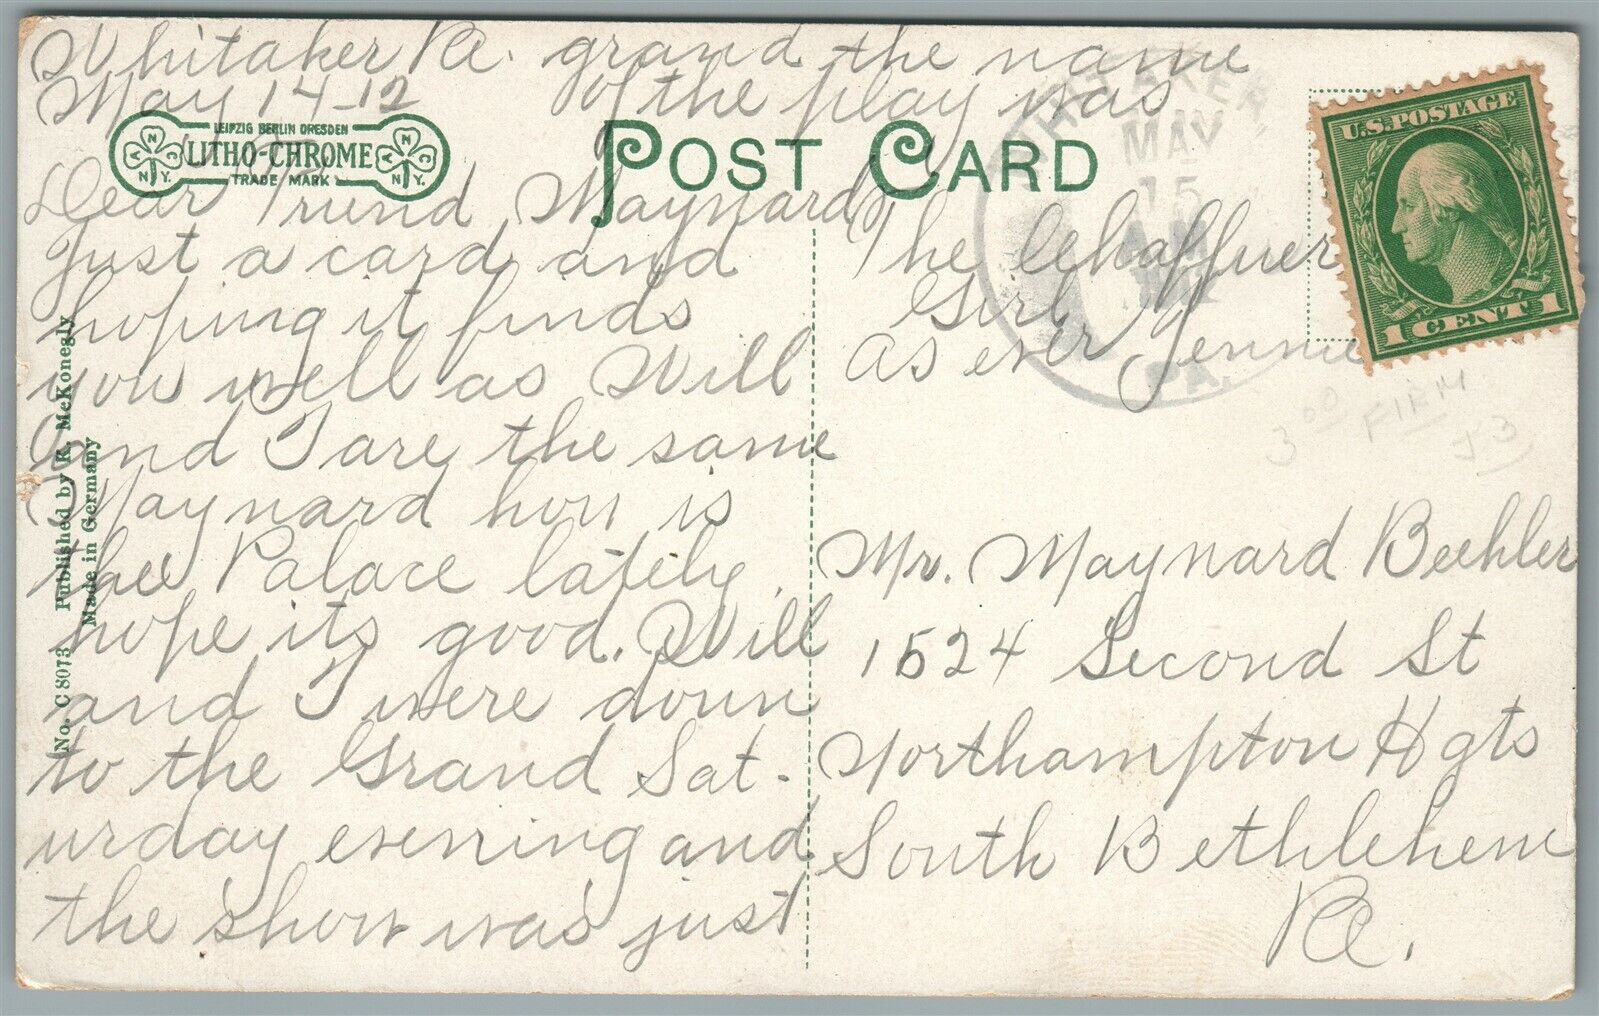 Whitaker Pa.
May 14-12
LEIPZIG BERLIN DRESDEN
LITHO-CHROME
TRADE MARK
A N C N.Y.
A N C N.Y.
POST CARD
Dear Friend Maynard
Just a card and
hoping it finds
you well as Will
and I are the same
Maynard how is
the Palace lately,
hope its good. Will
and I were down
to the Grand Sat-
urday evening and
the show was just
grand the name
of the play was
The Chaffuer
Girl
As ever Jennie
No. C 8073 Published by R. McKonegly
Made in Germany
WHITAKER
MAY
15
A.M.
PA.
U.S. POSTAGE
1 CENT 1
3 00 FIRM
J3
Mr. Maynard Beehler
1524 Second St
Northampton Hgts
South Bethlehem
Pa.